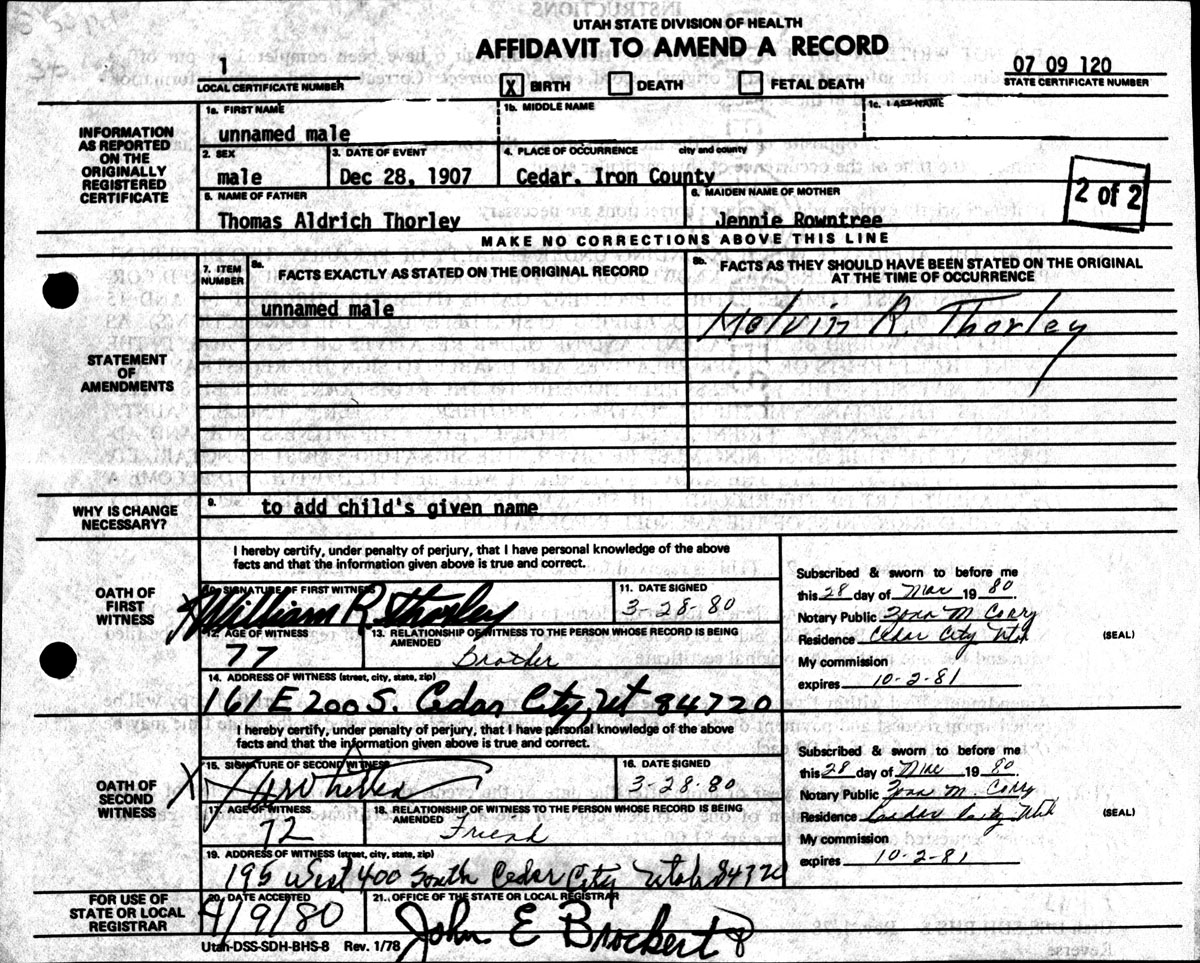 UTAH STATE DIVISION OF HEALTH
AFFIDAVIT TO AMEND A RECORD
1
LOCAL CERTIFICATE NUMBER
X BIRTH DEATH FETAL DEATH
07 09 120
STATE CERTIFICATE NUMBER
INFORMATION AS REPORTED ON THE ORIGINALLY REGISTERED CERTIFICATE
1a. FIRST NAME 1b. MIDDLE NAME 1c. LAST NAME
unnamed male
2. SEX 3. DATE OF EVENT 4. PLACE OF OCCURRENCE city and county
male Dec 28, 1907 Cedar, Iron County
5. NAME OF FATHER 6. MAIDEN NAME OF MOTHER
Thomas Aldrich Thorley Jennie Rowntree
2 of 2
MAKE NO CORRECTIONS ABOVE THIS LINE
STATEMENT OF AMENDMENTS
7. ITEM NUMBER
8a. FACTS EXACTLY AS STATED ON THE ORIGINAL RECORD
8b. FACTS AS THEY SHOULD HAVE BEEN STATED ON THE ORIGINAL AT THE TIME OF OCCURRENCE
unnamed male Melvin R. Thorley
WHY IS CHANGE NECESSARY?
9. to add child's given name
OATH OF FIRST WITNESS
I hereby certify, under penalty of perjury, that I have personal knowledge of the above
facts and that the information given above is true and correct.
10. SIGNATURE OF FIRST WITNESS 11. DATE SIGNED
X William R. Thorley 3-28-80
12. AGE OF WITNESS 13. RELATIONSHIP OF WITNESS TO THE PERSON WHOSE RECORD IS BEING AMENDED
77 Brother
14. ADDRESS OF WITNESS (street, city, state, zip)
161 E 200 S. Cedar City, Ut 84720
Subscribed & sworn to before me
this 28 day of Mar 19 80
Notary Public Zona M. Corry
Residence Cedar City Utah
(SEAL)
My commission
expires 10-2-81
OATH OF SECOND WITNESS
I hereby certify, under penalty of perjury, that I have personal knowledge of the above
facts and that the information given above is true and correct.
15. SIGNATURE OF SECOND WITNESS 16. DATE SIGNED
X 3-28-80
17. AGE OF WITNESS 18. RELATIONSHIP OF WITNESS TO THE PERSON WHOSE RECORD IS BEING AMENDED
72 Friend
19. ADDRESS OF WITNESS (street, city, state, zip)
195 West 400 South Cedar City Utah 84720
Subscribed & sworn to before me
this 28 day of Mar 19 80
Notary Public Zona M. Corry
Residence Cedar City Utah
(SEAL)
My commission
expires 10-2-81
FOR USE OF STATE OR LOCAL REGISTRAR
20. DATE ACCEPTED 21. OFFICE OF THE STATE OR LOCAL REGISTRAR
4/9/80 John E Brockert
Utah-DSS-SDH-BHS-8 Rev. 1/78